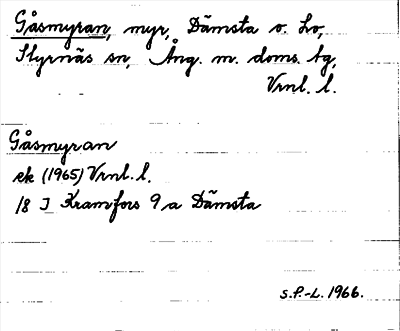 Gåsmyran, myr, Dämsta o. Lo,
Styrnäs sn, Ång. m. doms. tg,
Vrnl. l.
Gåsmyran
ek (1965) Vrnl. l.
18 I Kramfors 9 a Dämsta
S.P.-L. 1966.